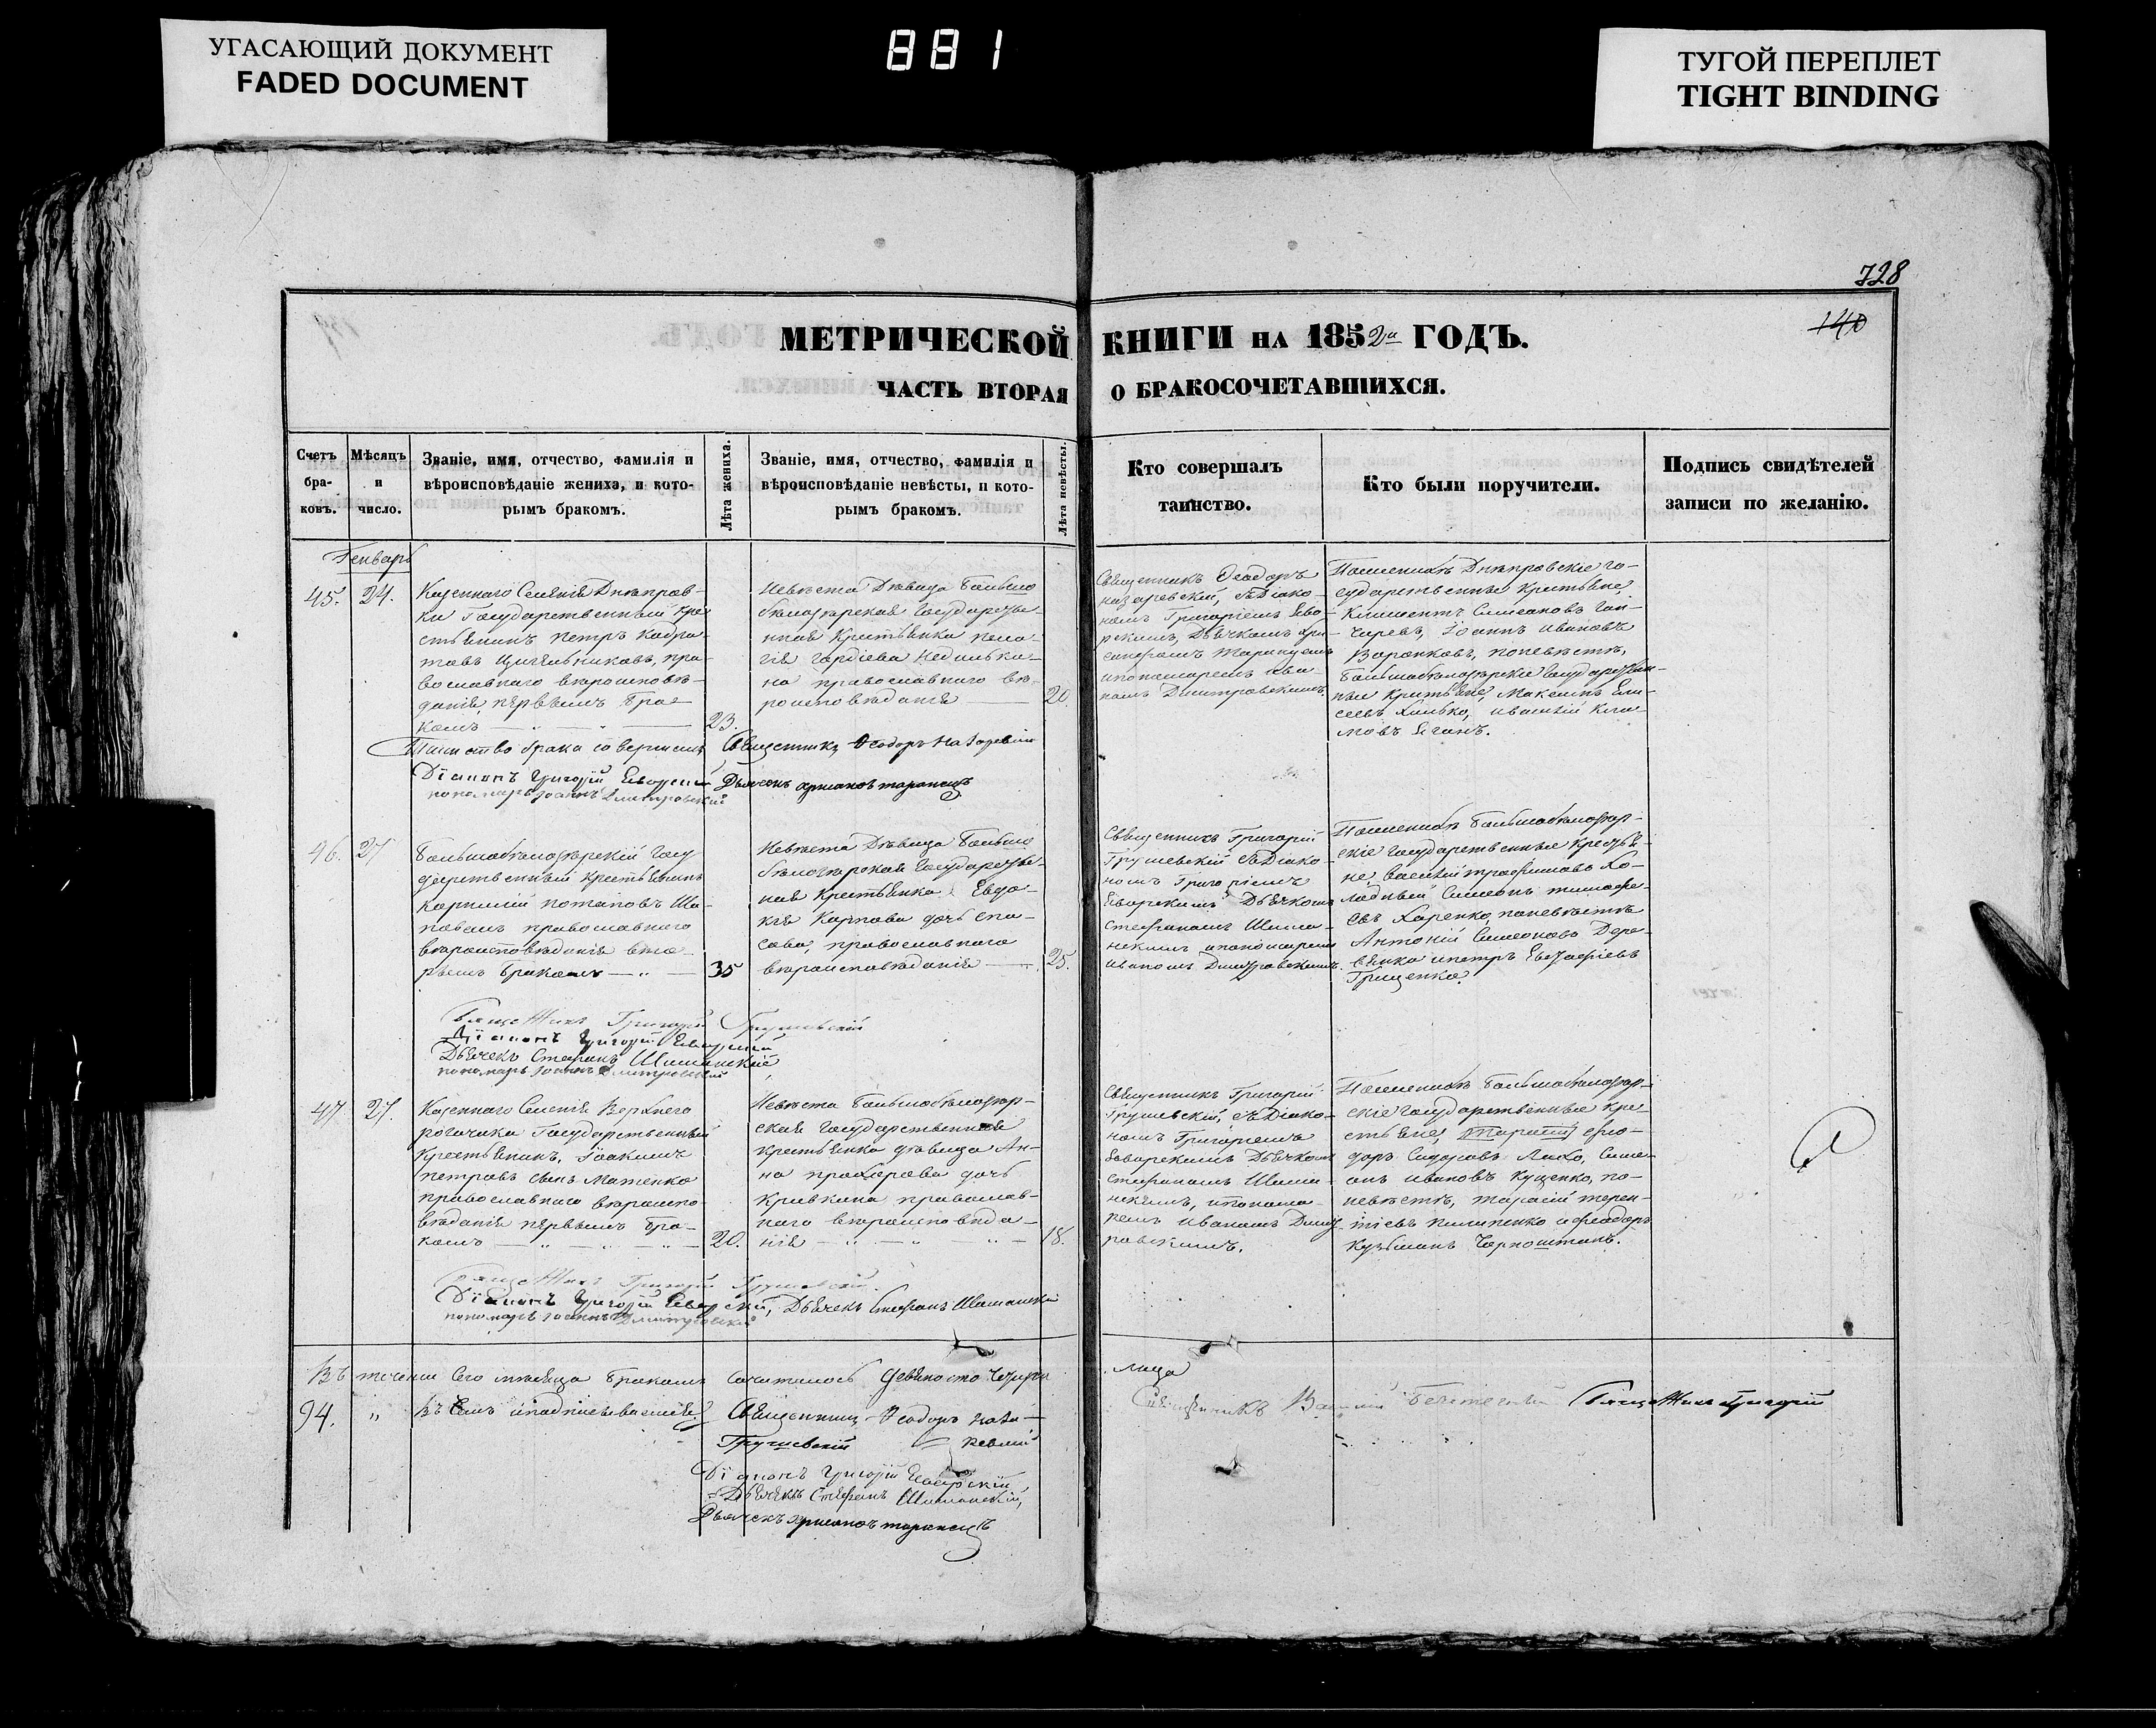 УГАСАЮЩИЙ ДОКУМЕНТ
FADED DOCUMENT
881
ТУГОЙ ПЕРЕПЛЕТ
TIGHT BINDING
728
140
МЕТРИЧЕСКОЙ КНИГИ НА 1852й ГОДЪ.
ЧАСТЬ ВТОРАЯ О БРАКОСОЧЕТАВШИХСЯ.
Счетъ бра-ковъ.
Мѣсяцъ и число.
Званіе, имя, отчество, фамилія и
вѣроисповѣданіе жениха, и кото-
рымъ бракомъ.
Лѣта жениха.
Званіе, имя, отчество, фамилія и
вѣроисповѣданіе невѣсты, и кото-
рымъ бракомъ.
Лѣта невѣсты.
Кто совершалъ
таинство.
Кто были поручители.
Подпись свидѣтелей
записи по желанію.
Генварь
45. 24.
Казеннаго Селенія Днѣпров-
ки Государственный кре
стьянинъ Петръ
православнаго вѣроисповѣ-
данія, первымъ бра-
комъ
23.
Невѣста Дѣвица Больше
бѣлозерская Государстве-
нная Крестьянка Пела-
гія Гордіева
на православнаго вѣ-
роисповѣданія
20.
Священникъ Ѳеодоръ
Назаревскій, съ Діако-
номъ Григоріемъ
Дьячкомъ
и пономаремъ Ива-
номъ Дмитровскимъ.
По женихѣ Днѣпровскіе го-
сударственные крестьяне,
Климентъ Симеоновъ Гон-
чаревъ, Іоаннъ Ивановъ
Воронковъ, по невѣстѣ,
Большебѣлозерскіе Государствен-
ные Крестьяне, Максимъ Ели-
сеевъ
Таинство брака совершилъ Священникъ Ѳеодоръ Назаревскій
Діаконъ Григорій
Пономарь Іоаннъ Дмитровскій
46. 27
Большебѣлозерскій Госу
дарственный крестьянинъ
Корнилій Потаповъ
православнаго
вѣроисповѣданія вто-
рымъ бракомъ
35
Невѣста Дѣвица Больше
бѣлозерская Государстве-
ная крестьянка Евдо-
кія Карпова дочь
православнаго
вѣроисповѣданія
25.
Священникъ Григорій
Грушевскій съ Діако-
номъ Григоріемъ
Дьячкомъ
Стефаномъ Шиман-
скимъ и пономаремъ
Иваномъ Дмитровскимъ.
По женихѣ Большебѣлозер-
скіе Государственные кресть-
яне, Василій Трофимовъ Хо-
лодный Симеонъ Тимофе-
евъ Харенко, по невѣстѣ
Антоній Симеоновъ Дере-
вянко и Петръ Евстафіевъ
Грищенко.
Священникъ Григорій Грушевскій
Діаконъ Григорій
Дьячекъ Стефанъ Шиманскій
Пономарь Іоаннъ Дмитровскій
47. 27.
Казеннаго Селенія Верхняго
Рогачика Государственный
Крестьянинъ, Іоакимъ
Петровъ сынъ Матенко
православнаго вѣроиспо-
вѣданія первымъ бра-
комъ
20.
Невѣста Большебѣлозер-
ская Государственная
крестьянка дѣвица Ан-
на Прохорова дочь
Кривкина православ-
наго вѣроисповѣда-
нія
18.
Священникъ Григорій
Грушевскій, съ Діако-
номъ Григоріемъ
Дьячкомъ
Стефаномъ Шиман-
скимъ, и понома-
ремъ Иваномъ Дмит
ровскимъ.
По женихѣ Большебѣлозер-
скіе Государственные кре-
стьяне,
Сидоровъ Симе-
онъ Ивановъ Куценко, по-
невѣстѣ, Тарасій Терен-
тіевъ Пилипенко и Феодоръ
Кузьминъ
Священникъ Григорій Грушевскій
Діаконъ Григорій Дьячекъ Стефанъ Шиманскій
Пономарь Іоаннъ Дмитровскій
Въ теченіи сего мѣсяца бракомъ сочиталось девяносто четыре лица
94. " въ чемъ и подписываемся Священникъ Ѳеодоръ Наза-
ревскій
Священникъ Василій
Священникъ Григорій
Грушевскій
Діаконъ Григорій
Дьячекъ Стефанъ Шиманскій,
Дьячекъ